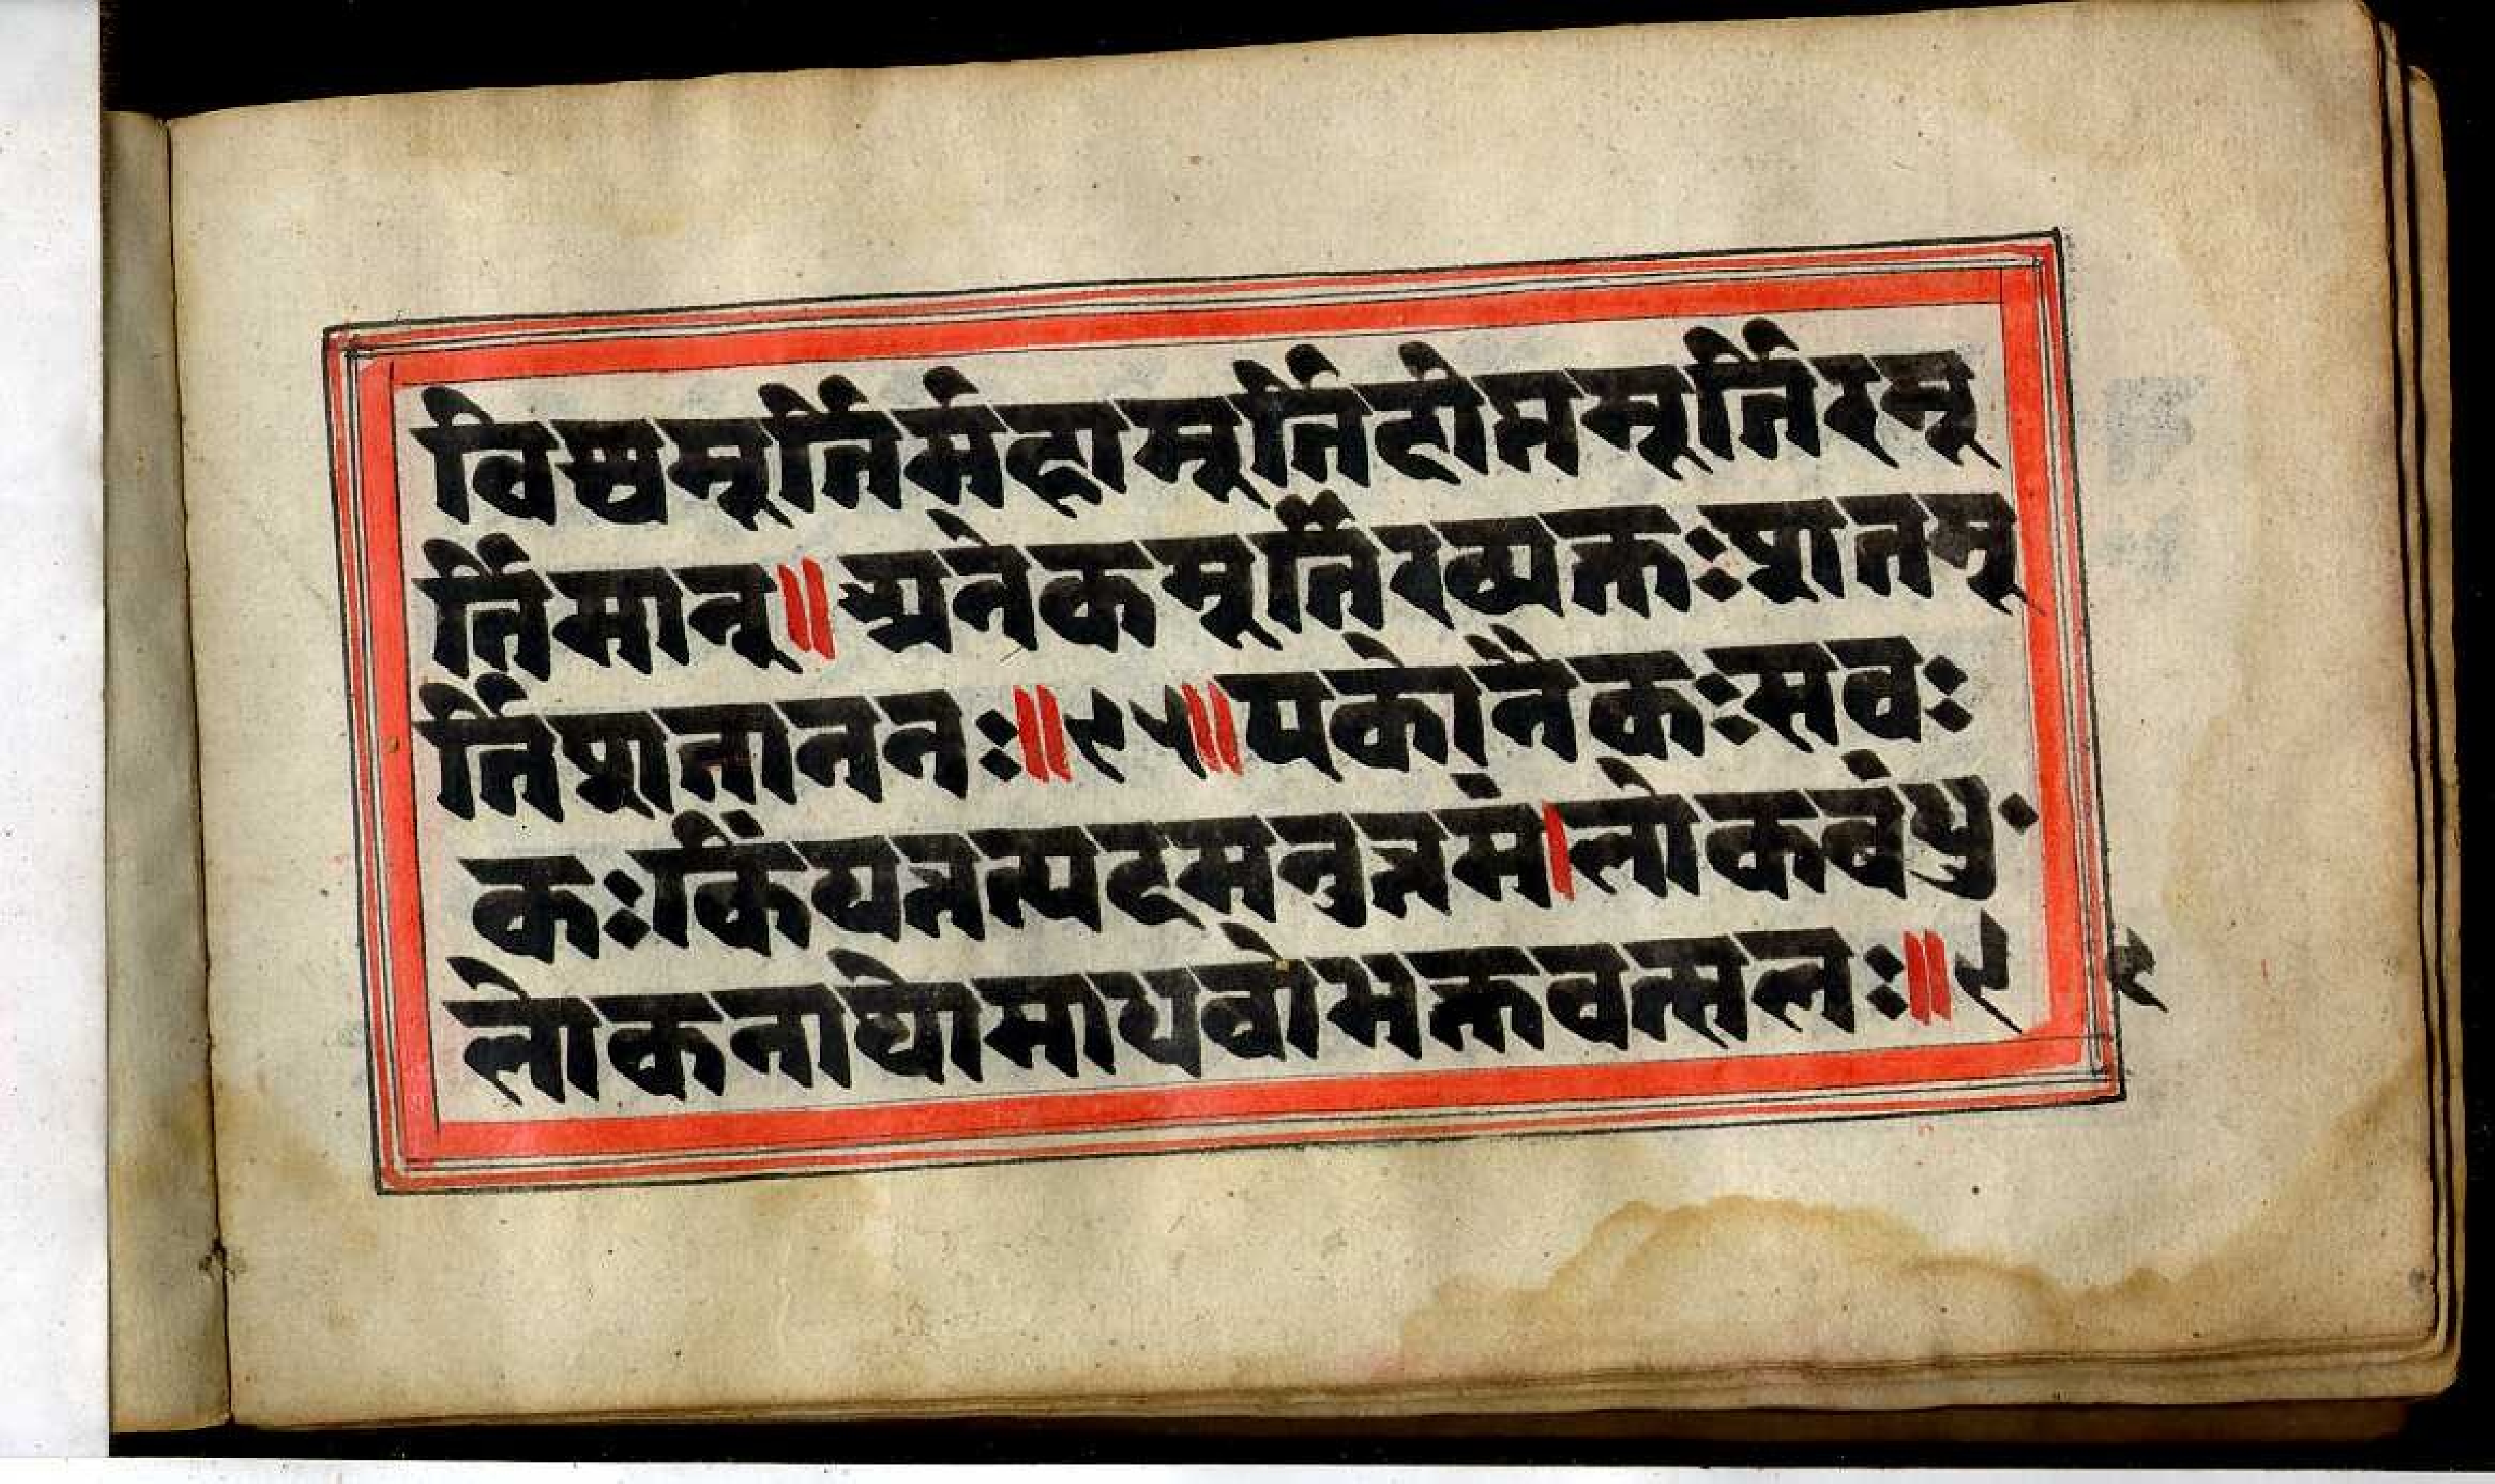 विश्वमूर्तिर्महामूर्तिर्दीप्तमूर्तिरमू
र्तिमान्॥अनेकमूर्तिरव्यक्तःशतमू
र्तिशताननः॥९५॥एकोनैकःसवः
कःकिंयत्तत्पदमनुत्तमं।लोकबंधु
लोकनाथोमाधवोभक्तवत्सलः॥९
२